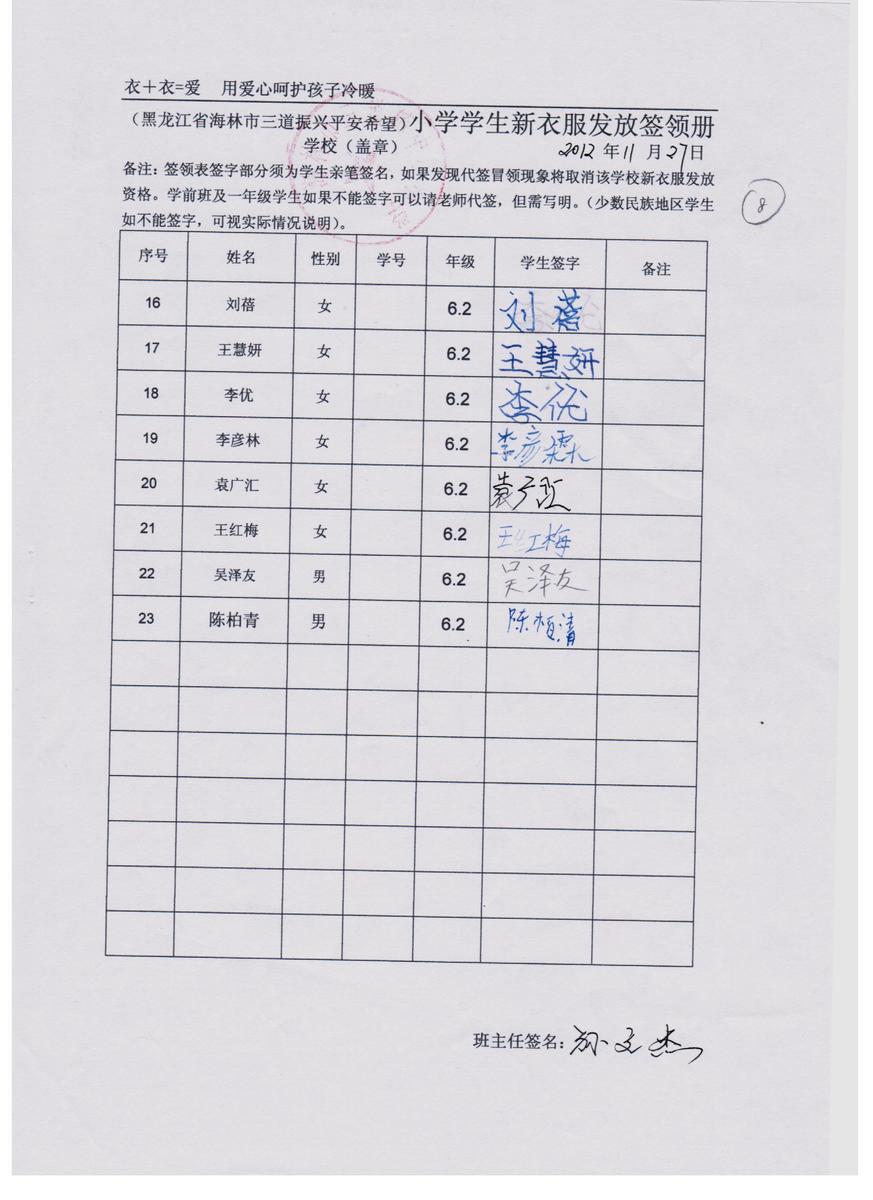 衣+衣=爱 用爱心呵护孩子冷暖
（黑龙江省海林市三道振兴平安希望）小学学生新衣服发放签领册
学校（盖章） 2012 年 11 月 27 日
备注：签领表签字部分须为学生亲笔签名，如果发现代签冒领现象将取消该学校新衣服发放
资格。学前班及一年级学生如果不能签字可以请老师代签，但需写明。（少数民族地区学生
如不能签字，可视实际情况说明）。
8
序号 姓名 性别 学号 年级 学生签字 备注
16 刘蓓 女 6.2 刘蓓
17 王慧妍 女 6.2 王慧妍
18 李优 女 6.2 李优
19 李彦林 女 6.2 李彦霖
20 袁广汇 女 6.2 袁广汇
21 王红梅 女 6.2 王红梅
22 吴泽友 男 6.2 吴泽友
23 陈柏青 男 6.2 陈柏清
班主任签名：孙文杰